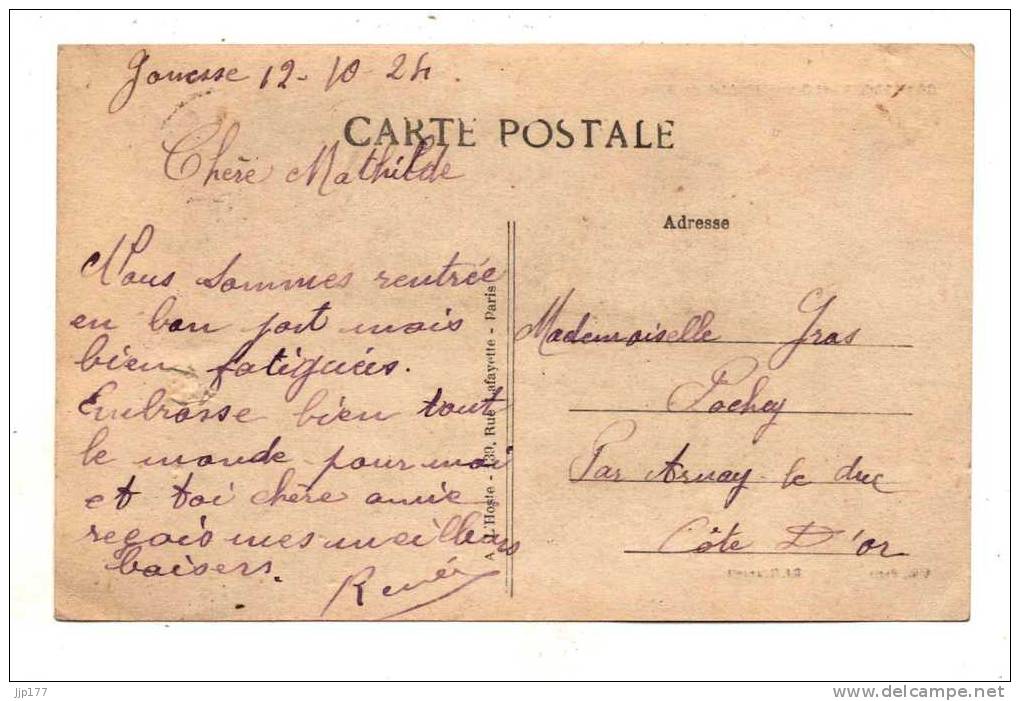 Gonesse 12-10-24.
CARTE POSTALE
Chère Mathilde
Nous sommes rentrée
en bon port mais
bien fatiguées.
Embrasse bien tout
le monde pour moi
et toi chère amie
reçois mes meilleurs
baisers.
Renée
A. L'Hoste - 139, Rue Lafayette - Paris
Adresse
Mademoiselle Gras
Pochey
Par Arnay le duc
Côte D'or
jjp177
www.delcampe.net